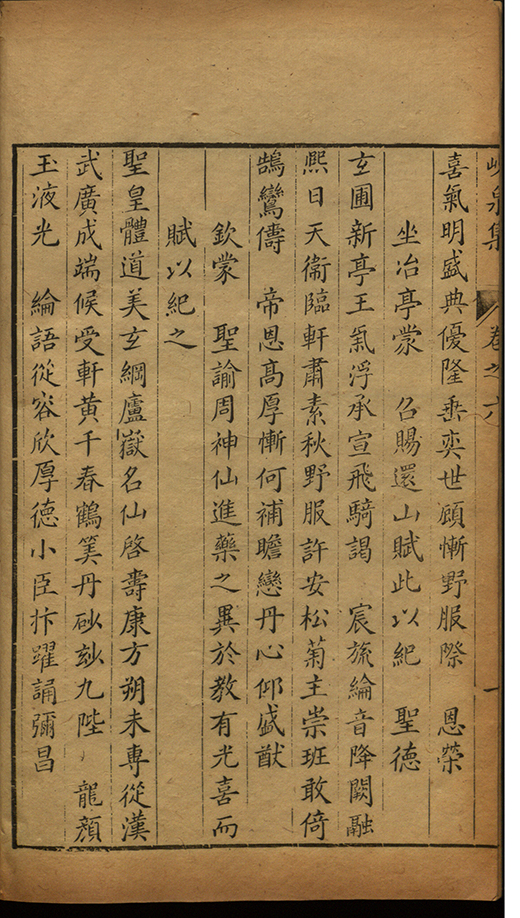 峴泉集 卷之六 一
喜氣明盛典優隆垂奕世顧慚野服際 恩榮
坐冶亭蒙 召賜還山賦此以紀 聖德
玄圃新亭王氣浮承宣飛騎謁 宸旒綸音降闕融
熙日天衞臨軒肅素秋野服許安松菊主崇班敢倚
鵠鸞儔 帝恩高厚慚何補瞻戀丹心仰盛猷
欽蒙 聖諭周神仙進藥之異於教有光喜而
賦以紀之
聖皇體道美玄綱廬嶽名仙啓壽康方朔未專從漢
武廣成端候受軒黃千春鶴筭丹砂刻九陛 龍顔
玉液光 綸語從容欣厚德小臣抃躍誦彌昌